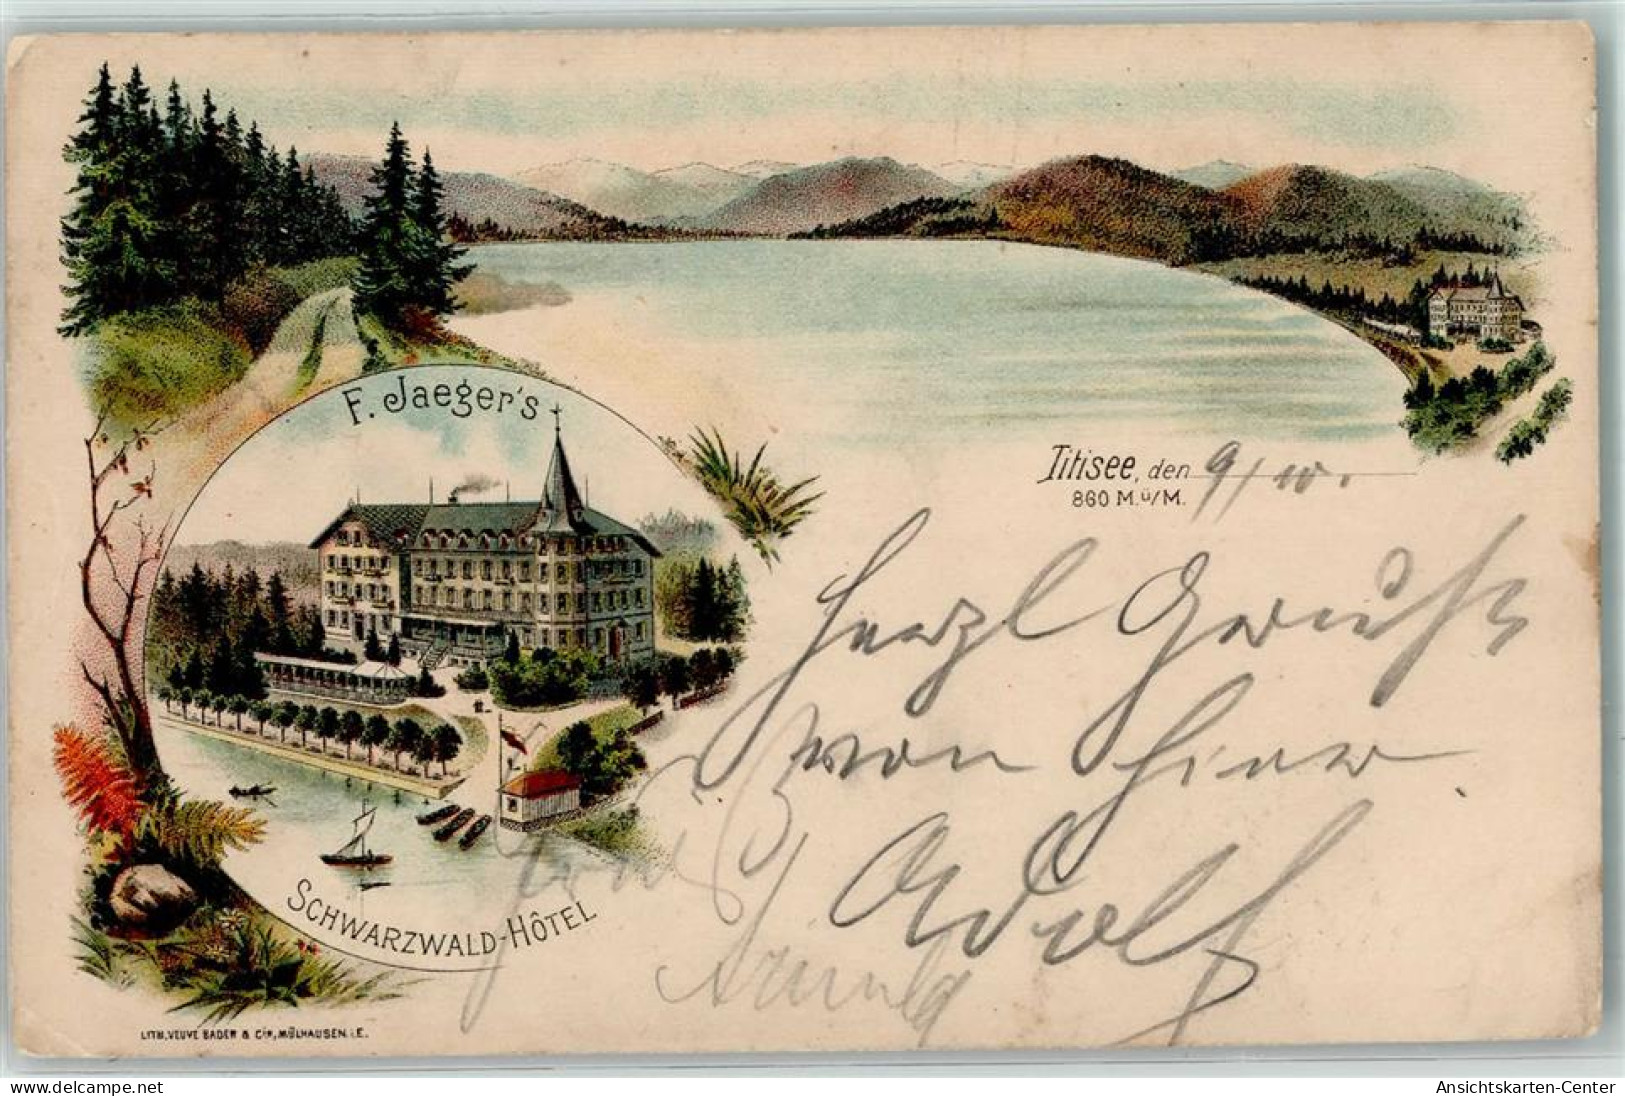 F. Jaeger's
SCHWARZWALD-HÔTEL
Titisee, den 9/10.
860 M.ü/M.
Herzl Gruß
von hier.
Adolf
LITH. VEUVE BADER & Cie, MÜLHAUSEN i.E.
oldthing.de
Ansichtskarten-Center